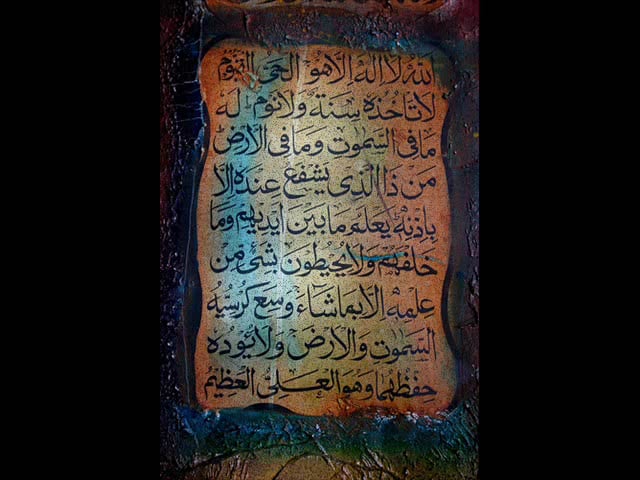 الله لا اله الا هو الحى القيوم
لا تاخذه سنة ولا نوم له
ما فى السموت وما فى الارض
من ذا الذى يشفع عنده الا
باذنه يعلم ما بين ايديهم وما
خلفهم ولا يحيطون بشئ من
علمه الا بما شاء وسع كرسيه
السموت والارض ولا يوده
حفظهما وهو العلى العظيم